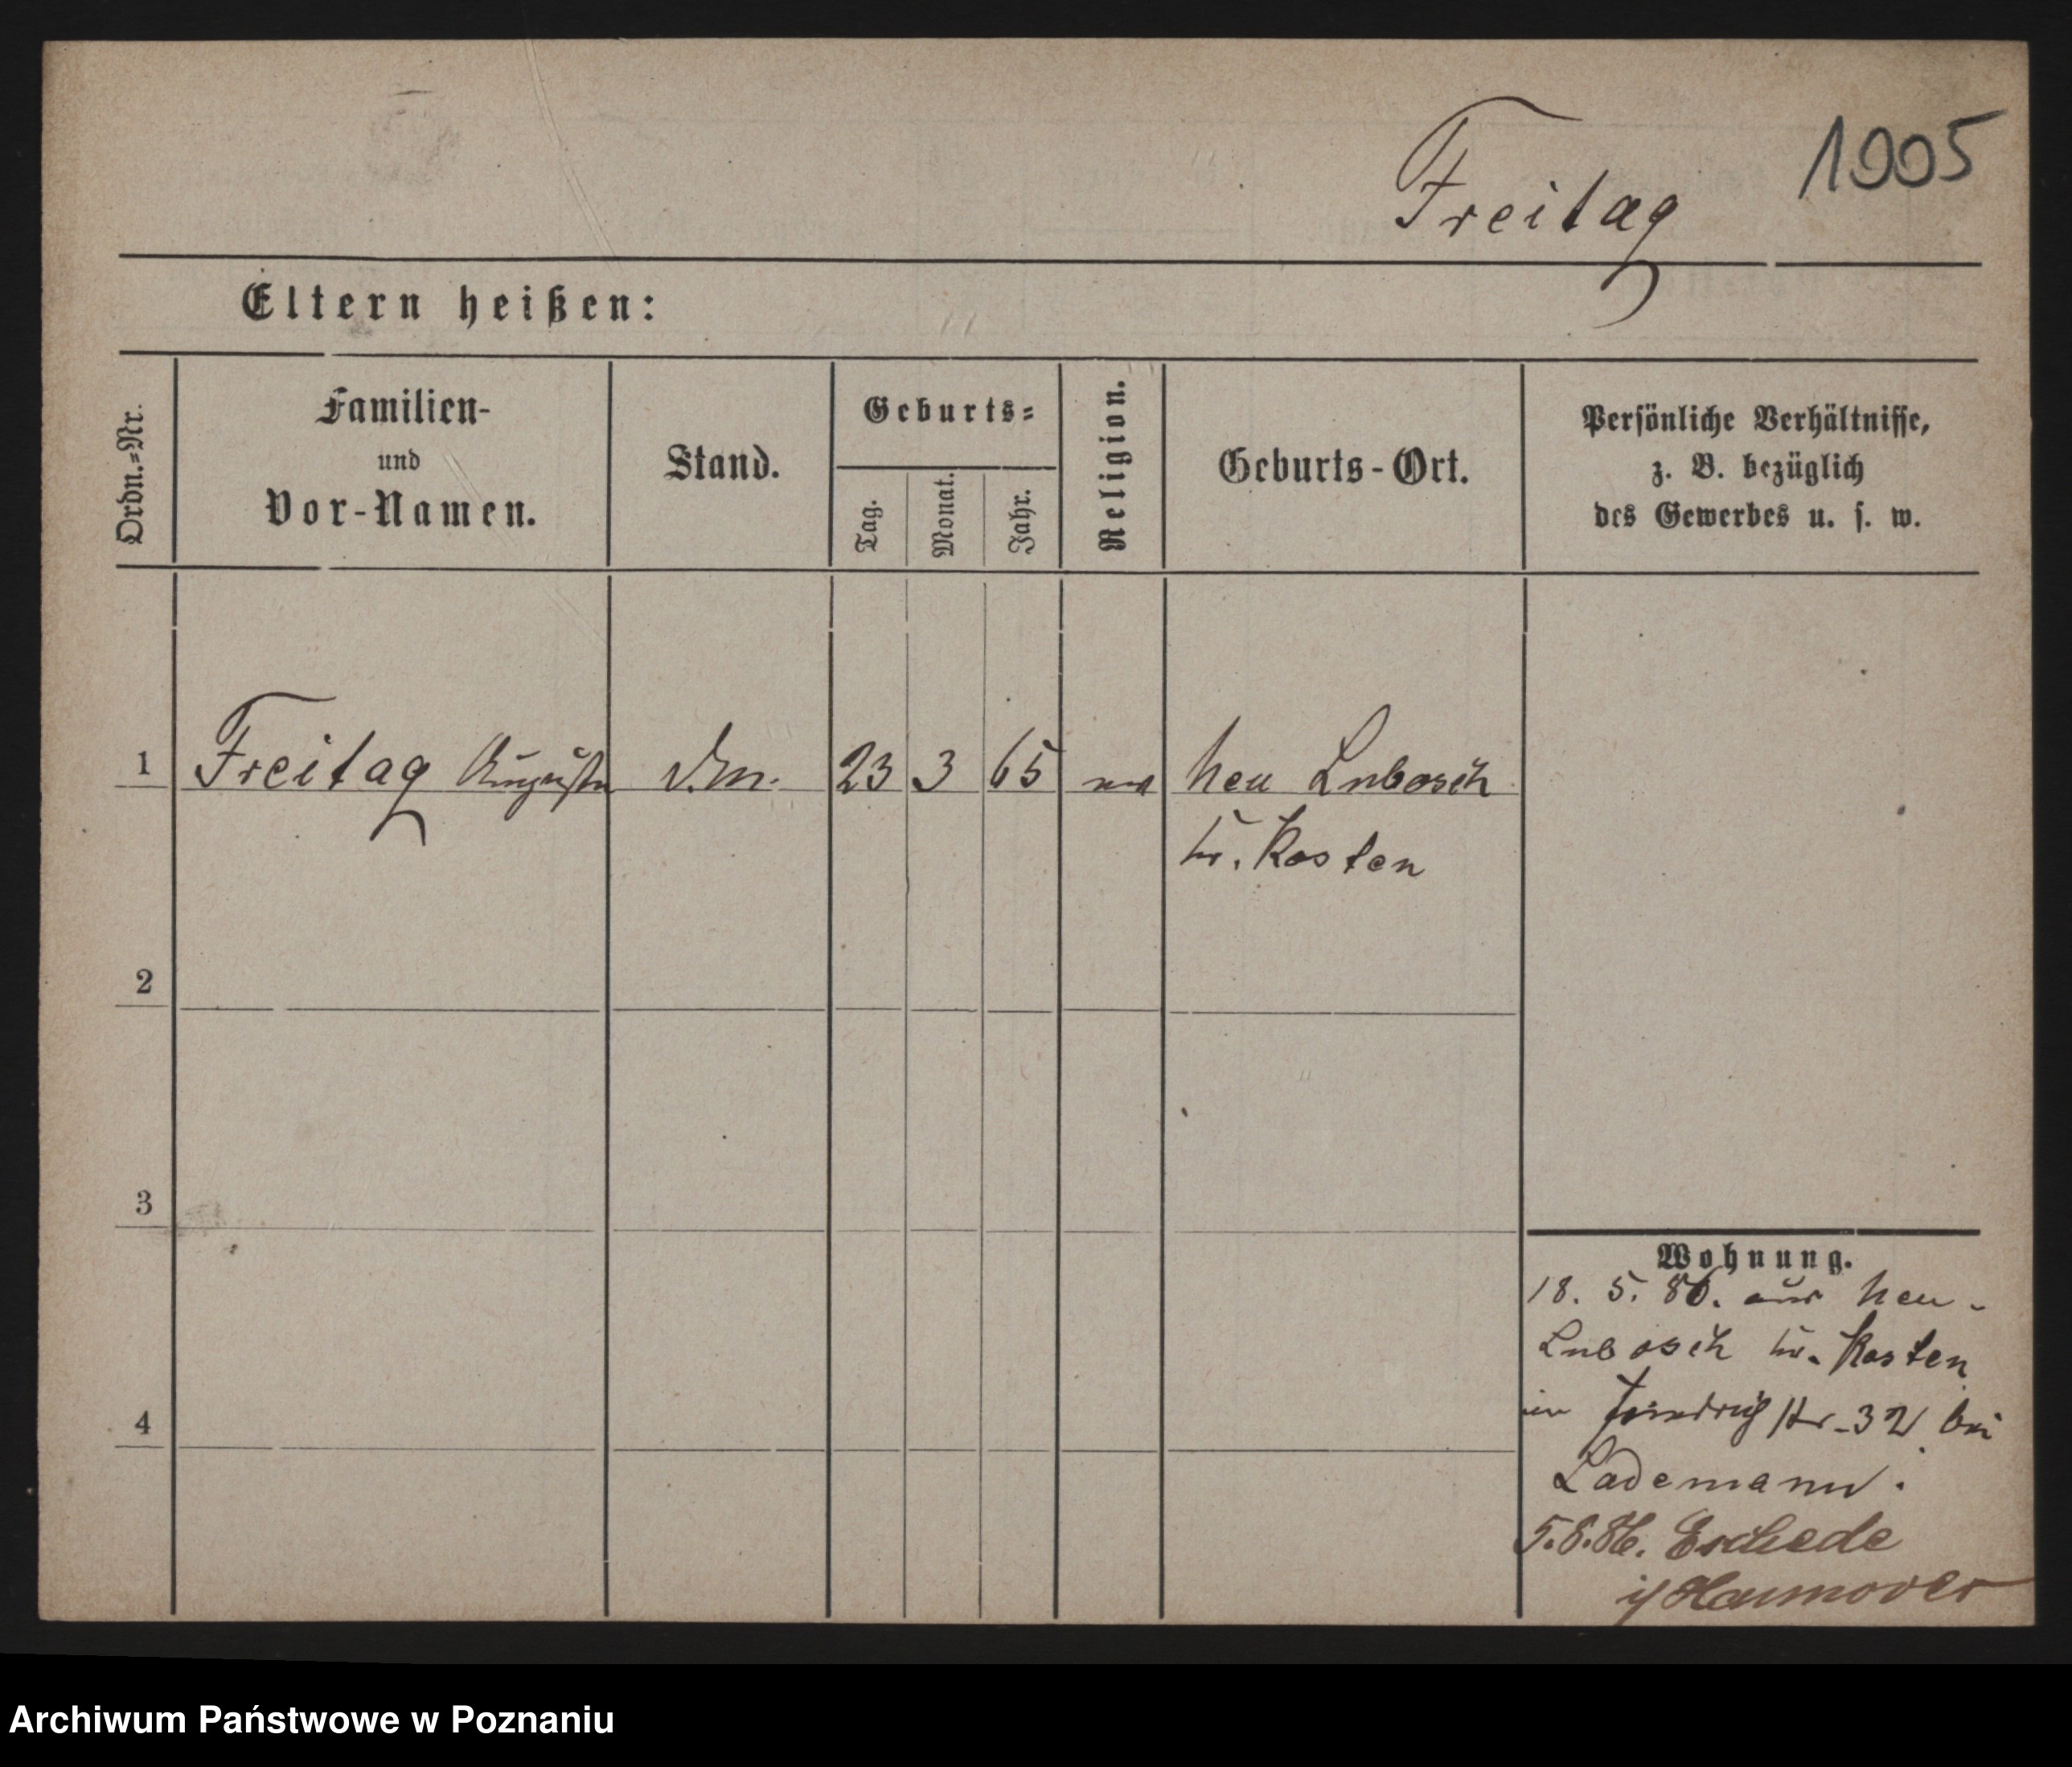 1005
Freitag
Eltern heißen:
Ordn.=Nr.
Familien-
und
Vor-Namen.
Stand.
Geburts=
Tag.
Monat.
Jahr.
Religion.
Geburts-Ort.
Persönliche Verhältnisse,
z. B. bezüglich
des Gewerbes u. s. w.
1 Freitag Auguste 23 3 65 Neu Lubosch
Kr. Kosten
2
3
4
Wohnung.
18. 5. 86. aus Neu-
Lubosch Kr. Kosten
in Friedrichstr. 32 bei
Lademann.
5.8.86. Eschede
i/ Hannover
Archiwum Państwowe w Poznaniu